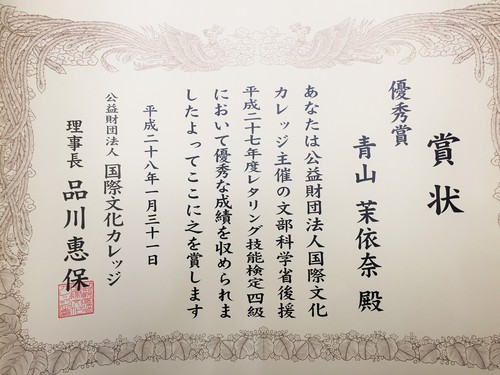 賞状
優秀賞
青山 茉依奈 殿
あなたは公益財団法人国際文化
カレッジ主催の文部科学省後援
平成二十七年度レタリング技能検定四級
において優秀な成績を収められま
したよってここに之を賞します
平成二十八年一月三十一日
公益財団法人 国際文化カレッジ
理事長 品川惠保